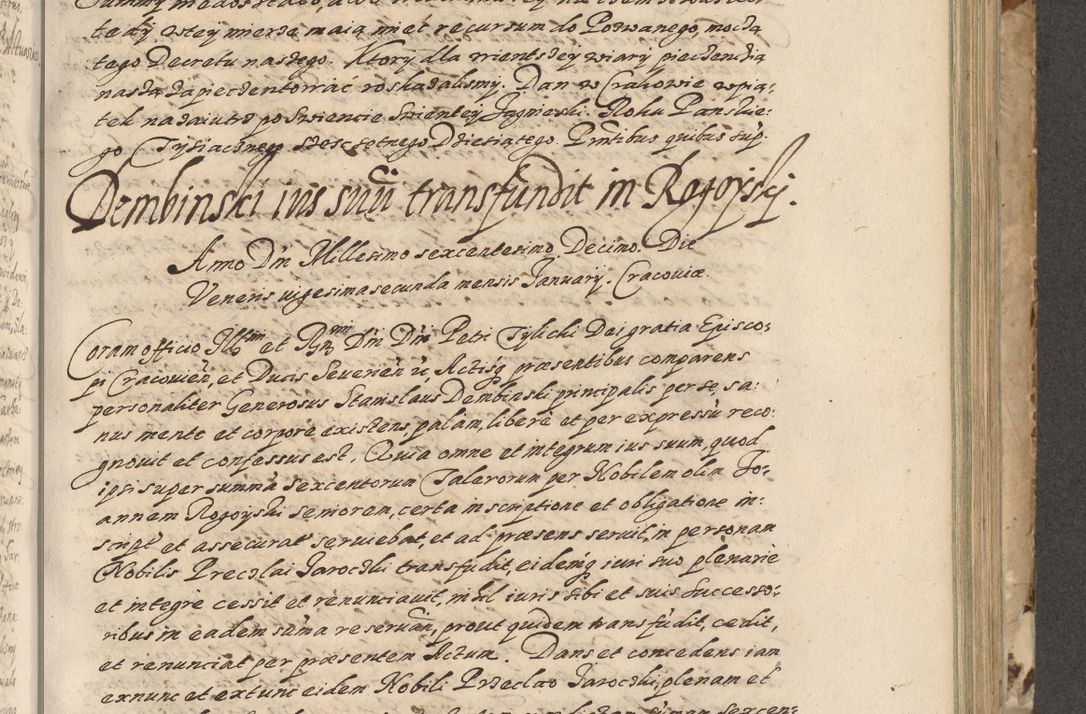 tedy wtey mierze maią mieć recursum do Pozwanego, mocą
tego Decretu naszego. Ktory dla wientszey wiary pieczencią
naszą zapieczentować roskazalismy. Dan w Crakowie wpią-
tek nazaiutrz po Swiencie Swientey Jagnieszki. Roku Panskie-
go Tysiącznego szescsetnego Dziesiątego. Pñtibus quibus sup.
Dembinski ius suũ transfundit in Rogoyskj.
Anno Dñi Millesimo sexcentesimo Decimo. Die
Veneris vigesima secunda mensis Januarij. Cracoviæ.
Coram officio Illmi et Rmi Dñi Dñi Petri Tylicki Dei gratia Episco-
pi Cracovień, et Ducis Severień ić, Actisq præsentibus comparens
personaliter Generosus Stanislaus Dembinski principalis per se, sa-
nus mente et corpore existens, palam, libere et per expressũ reco-
gnouit et confessus est, Quia omne et integrum ius suum, quod
ipsi super summa sexcentorum Talerorum per Nobilem olim Jo-
annem Rogoyski seniorem, certa inscriptione et obligatione in-
script et assecurat serviebat, et ad præsens servit, in personam
Nobilis Preczlai Jaroczki transfudit, eidemq iuri suo plenarie
et integre cessit et renunciavit, nihil iuris sibi et suis successo-
ribus in eadem suma reservañ, prout quidem transfudit, cedit,
et renunciat per præsentem Actum. Dans et concedens iam
exnunc et extunc eidem Nobili Przeclao Jaroczki, plenam et